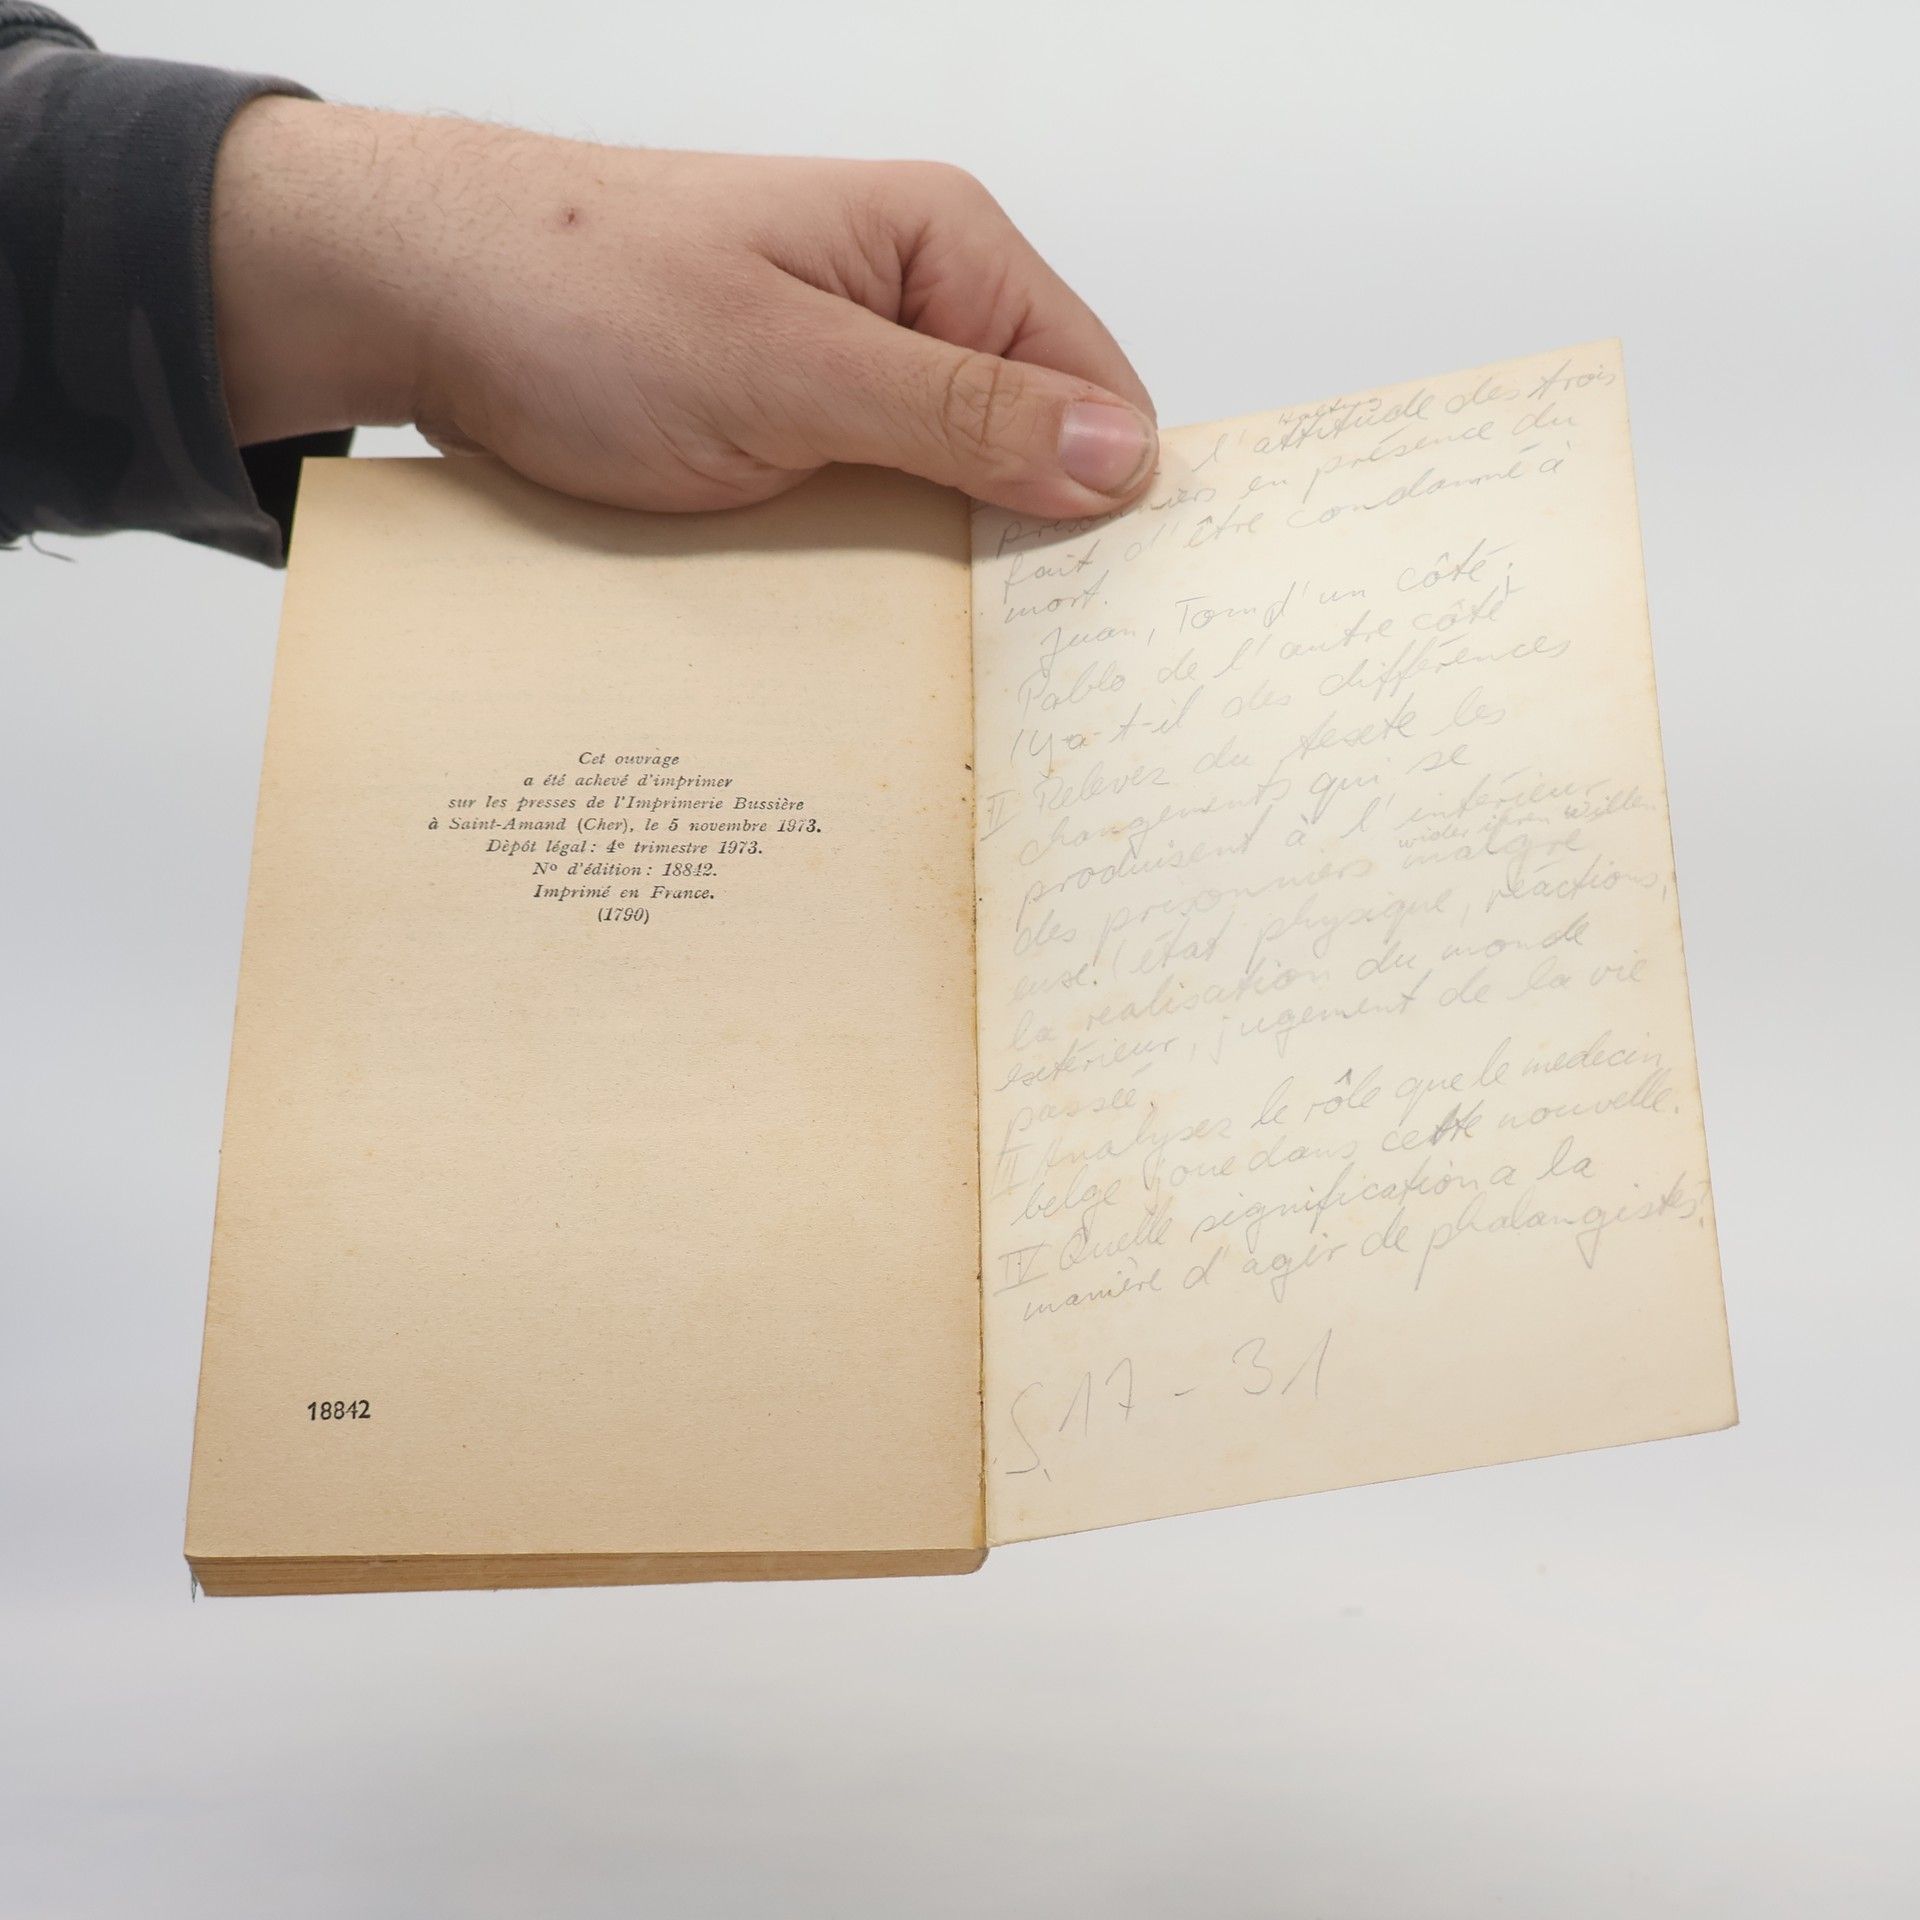 Cet ouvrage
a été achevé d'imprimer
sur les presses de l'Imprimerie Bussière
à Saint-Amand (Cher), le 5 novembre 1973.
Dépôt légal : 4e trimestre 1973.
No d'édition : 18842.
Imprimé en France.
(1790)
18842
Haltung
l'attitude des trois
prisonniers en présence du
fait d'être condamné à
mort.
Juan, Tom d'un côté,
Pablo de l'autre côté
(y-a-t-il des différences
II Relevez du texte les
changements qui se
produisent à l'intérieur
wider ihren Willen
des prisonniers malgré
eux. (état physique, réactions,
la realisation du monde
extérieur, jugement de la vie
passée.
II Analysez le rôle que le medecin
belge joue dans cette nouvelle.
IV Quelle signification a la
manière d'agir de phalangistes?
S. 17 - 31